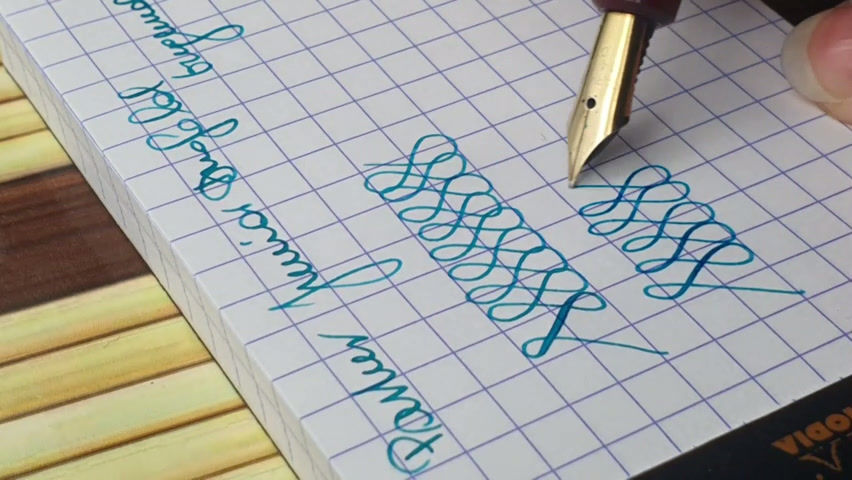 Parker Junior Duofold
ODIA